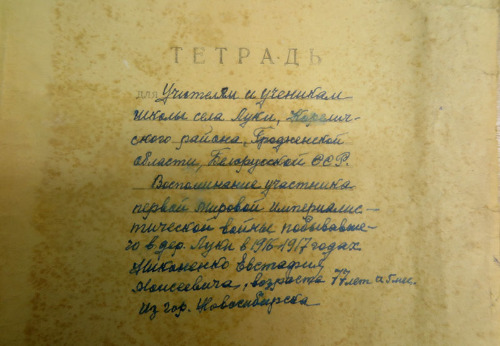 ТЕТРАДЬ
для Учителям и ученикам
школы села Луки, Корелич-
ского района, Гродненской
области, Белорусской ССР.
Воспоминание участника
первой мировой империалис-
тической войны побывавше-
го в дер. Луки в 1916-1917 годах
Никоненко Евстафия
Моисеевича, возраста 77 лет и 5 мес.
Из гор. Новосибирска